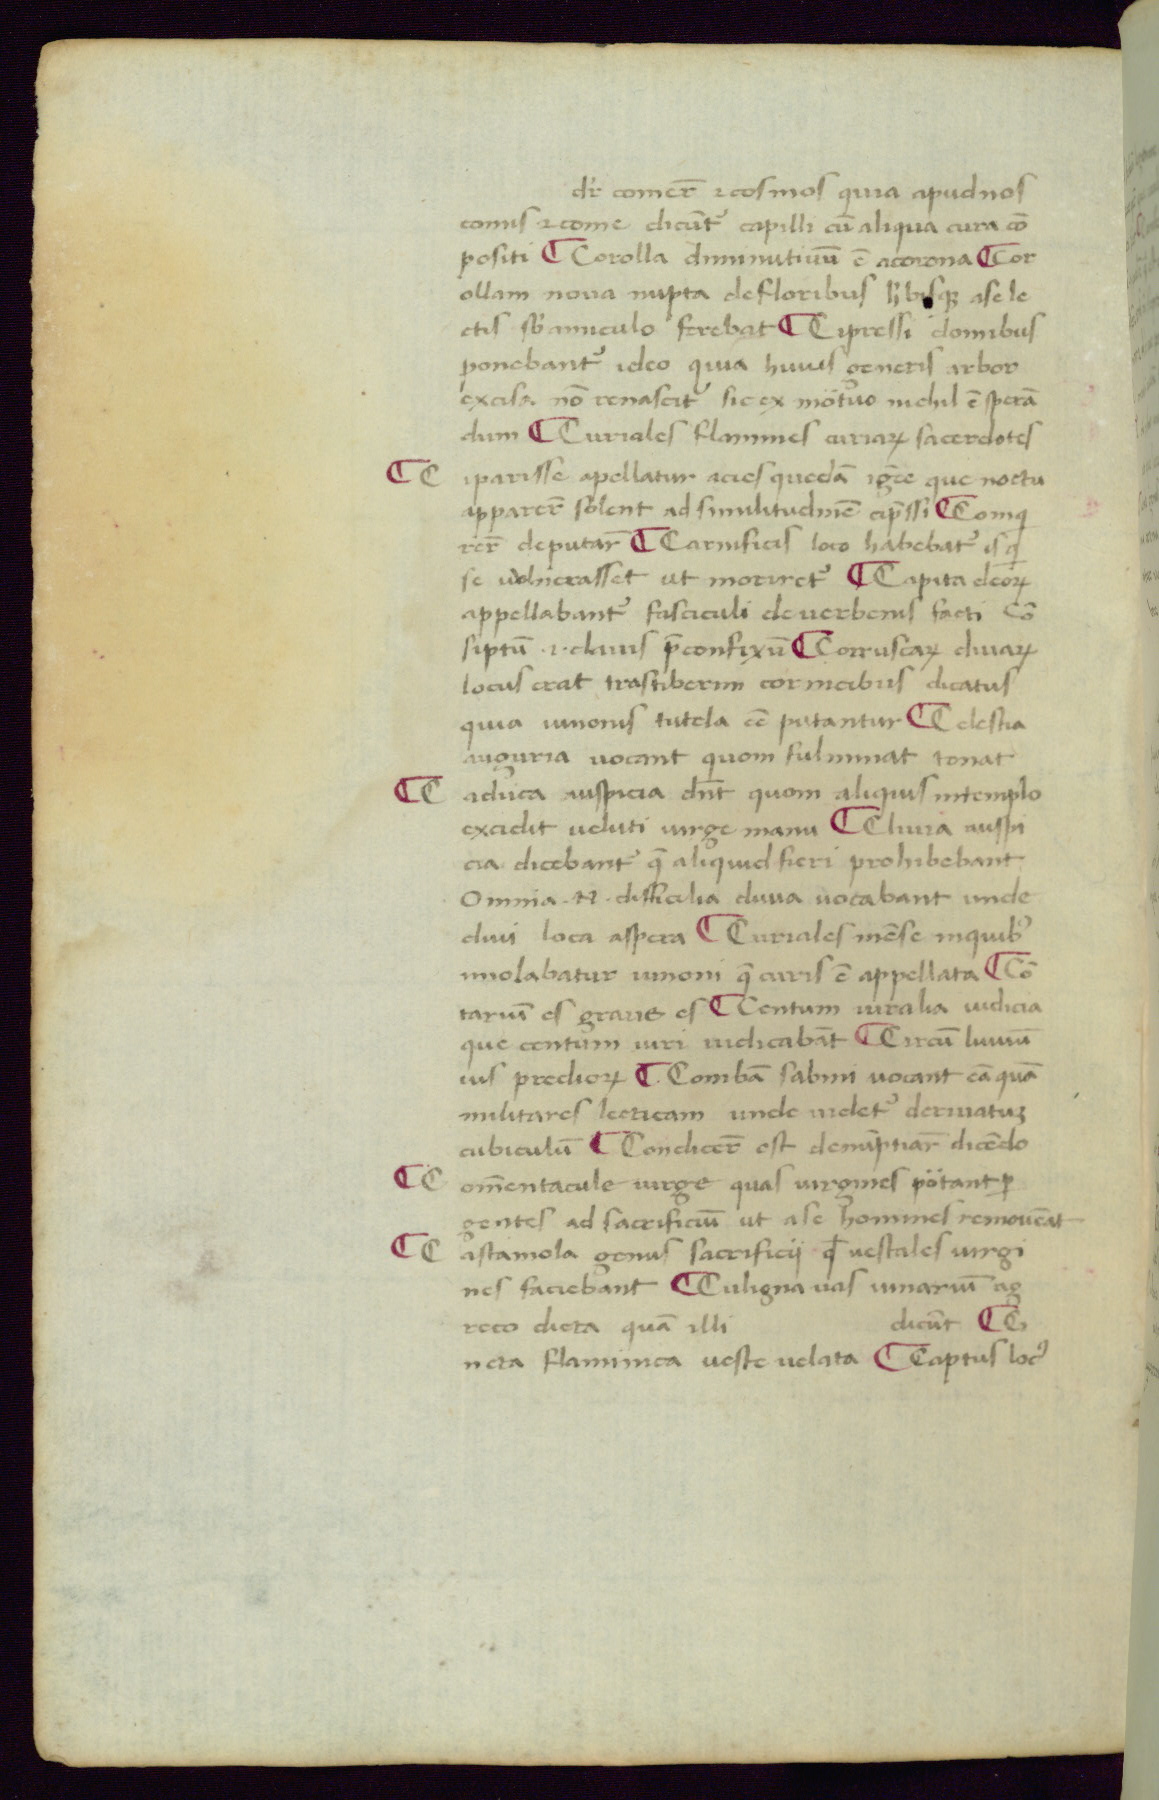 dr̄ comer̄ ⁊ cosmos quia apud nos
comis ⁊ come dicūt᷑ capilli cū aliqua cura cō
positi ¶ Corolla diminutiuū ē acorona ¶ Cor
ollam noua nupta defloribus h̄bisqꝫ ase le
ctis sb̄ amiculo ferebat ¶ Cipressi domibus
ponebant᷑ ideo quia huius generis arbor
excisa nō renascit᷑ sic ex mortuo nichil ē sperā
dum ¶ Curiales flamines curiaꝝ sacerdotes
¶ C iparisse apellatur acies quedā ignee que noctu
apparer̄ solent ad similitudinē cip̄ssi ¶ Comq̄
rer̄ deputar̄ ¶ Carnificis loco habebat᷑ is q̄
se uulnerasset ut moriret᷑ ¶ Capita deoꝝ
appellabant᷑ fasciculi deuerbenis facti Cō
siptū ·⁊· clauis p̄confixū ¶ Corruscaꝝ diuaꝝ
locus erat trastiberim cornicibus dicatus
quia iunonis tutela eē putantur ¶ Celestia
auguria uocant quom fulminat tonat
¶ C aduca auspicia dn̄t quom aliquis intemplo
excidit ueluti uirge manu ¶ Cliuia auspi
cia dicebant᷑ q̄ aliquid fieri prohibebant
Omnia ·N· difficilia cliua uocabant unde
cliui loca aspera ¶ Curiales mēse inquib᷑
imolabatur iunoni q̄ curis ē appellata ¶ Cō
tariū es graue es ¶ Centum uiralia iudicia
que centum uiri iudicabāt ¶ Circū luuiū
ius predioꝝ ¶ Combā sabini uocant eā quā
militares lecticam unde uidet᷑ deriuatuꝫ
cubiculū ¶ Condicer̄ est denūptiar̄ dicēdo
¶ C om̄entacule uirge quas uirgines portant ꝑ
gentes ad sacrificiū ut ase homines remoueāt
¶ C astamola genus sacrificij qđ uestales uirgi
nes faciebant ¶ Culigna uas uinariū ag
reco dicta quā illi dicūt ¶ Ci
ncta flaminica ueste uelata ¶ Captus loc᷑